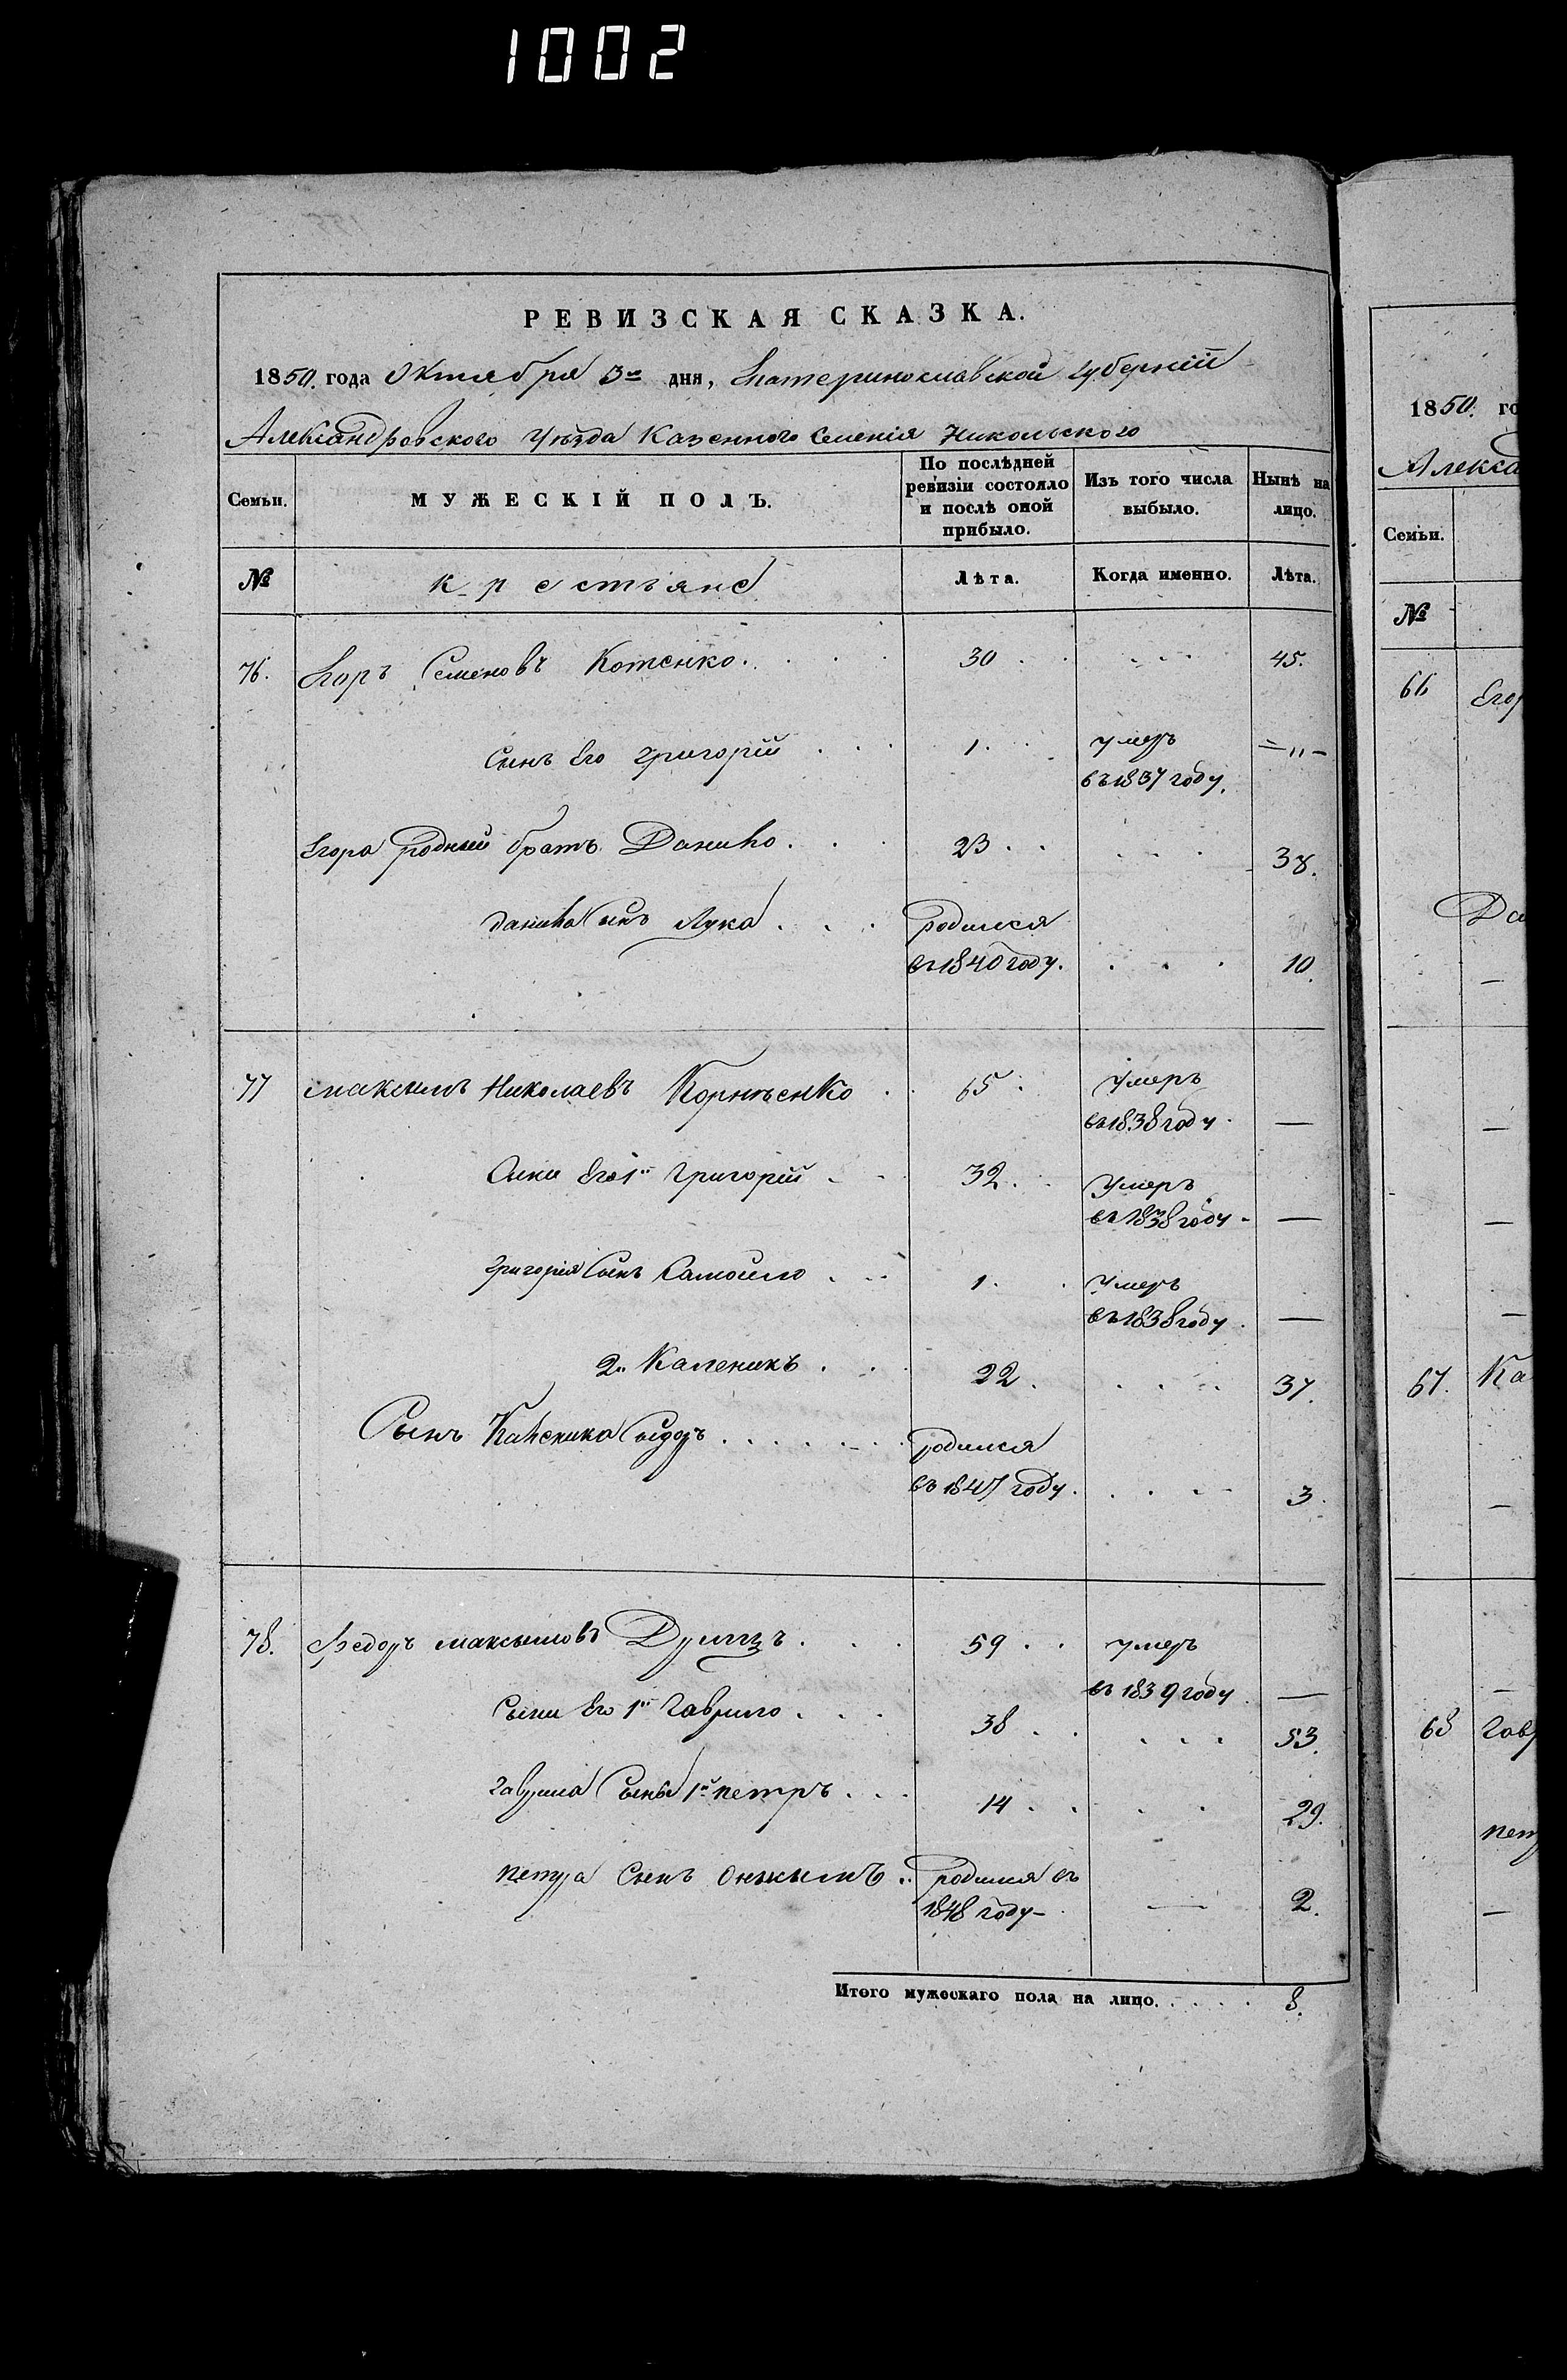 1002
РЕВИЗСКАЯ СКАЗКА.
1850. года Октября 3го дня, Екатеринославской губерніи
Александровского уѣзда Казенного Селенія Никольского
Семьи.
МУЖЕСКІЙ ПОЛЪ.
По послѣдней ревизіи состояло и послѣ оной прибыло.
Изъ того числа выбыло.
Нынѣ на лицо.
№
крестьяне
Лѣта.
Когда именно.
Лѣта.
76. Егоръ Семеновъ Котенко. 30 45.
Сынъ Его Григорій 1. умеръ
въ 1837 году. = „ -
Егора родный братъ Данило. 23 38.
Данила Сынъ Лука родился
въ 1840 году. 10.
77 Максимъ Николаевъ Корнѣенко 65 Умеръ
въ 1838 году. —
Сыни Его 1й Григорій 32. Умеръ
въ 1838 году —
Григорія Сынъ Самойло 1. Умеръ
въ 1838 году. —
2й Каленикъ 22. 37.
Сынъ Каленика Сидоръ родился
въ 1847 году. 3.
78. Федоръ Максымовъ 59 умеръ
въ 1839 году. —
Сыни Его 1й Гаврило. 38 53.
Гаврила Сыны 1й петръ. 14 29.
петра Сынъ родился въ
1848 году — 2.
Итого мужескаго пола на лицо. 8.
1850. го
Алекса
Семьи.
№
66 Егор
Да
67. Ка
68 Гавр
пет